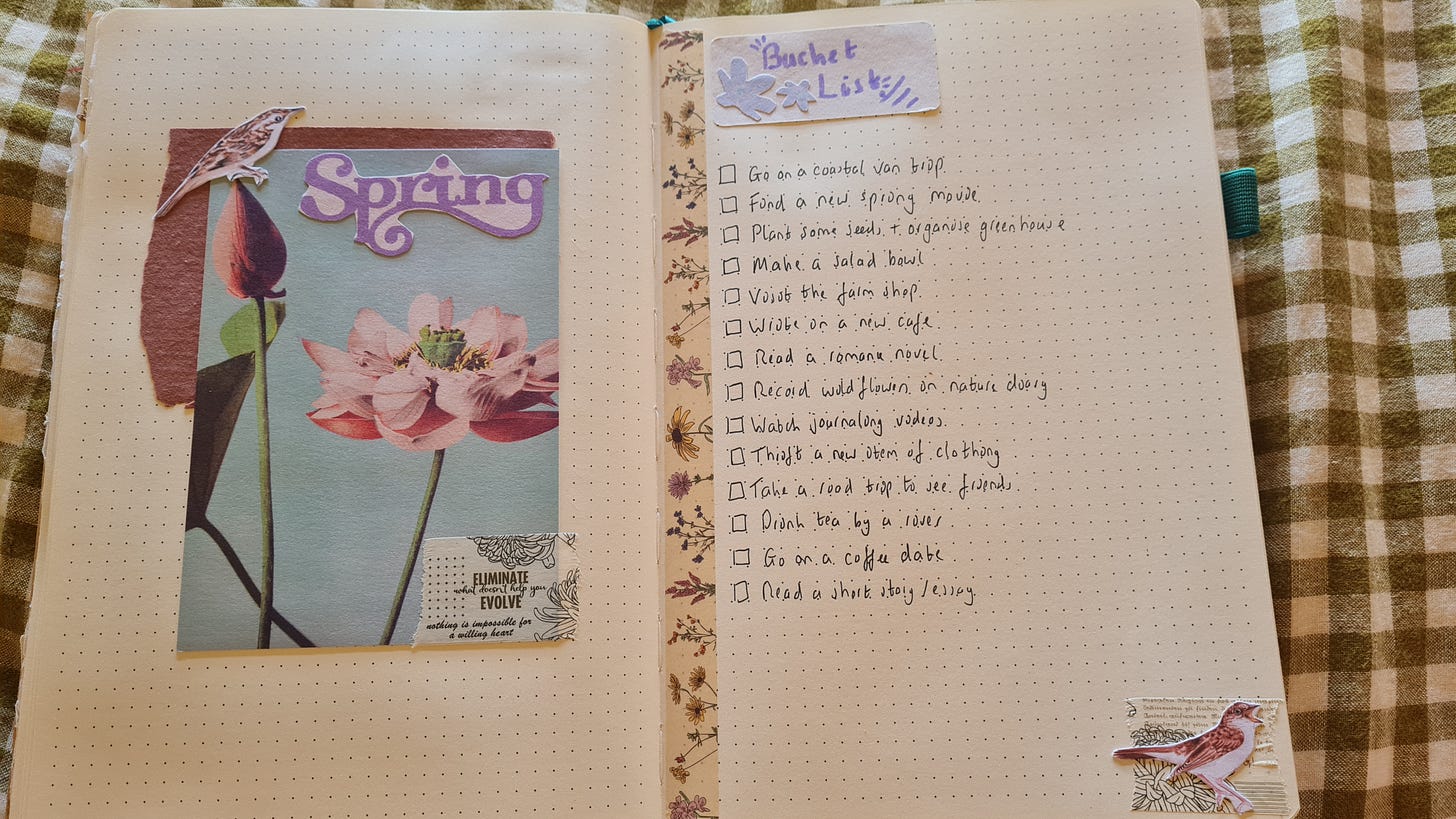 Spring
ELIMINATE
what doesn't help you
EVOLVE
nothing is impossible for
a willing heart
Bucket
List
Go on a coastal van trip.
Find a new spring movie.
Plant some seeds + organise greenhouse
Make a salad bowl
Visit the farm shop.
Write in a new cafe.
Read a romance novel.
Record wildflowers in nature diary
Watch journaling videos.
Thrift a new item of clothing
Take a road trip to see friends.
Drink tea by a river
Go on a coffee date
Read a short story/essay